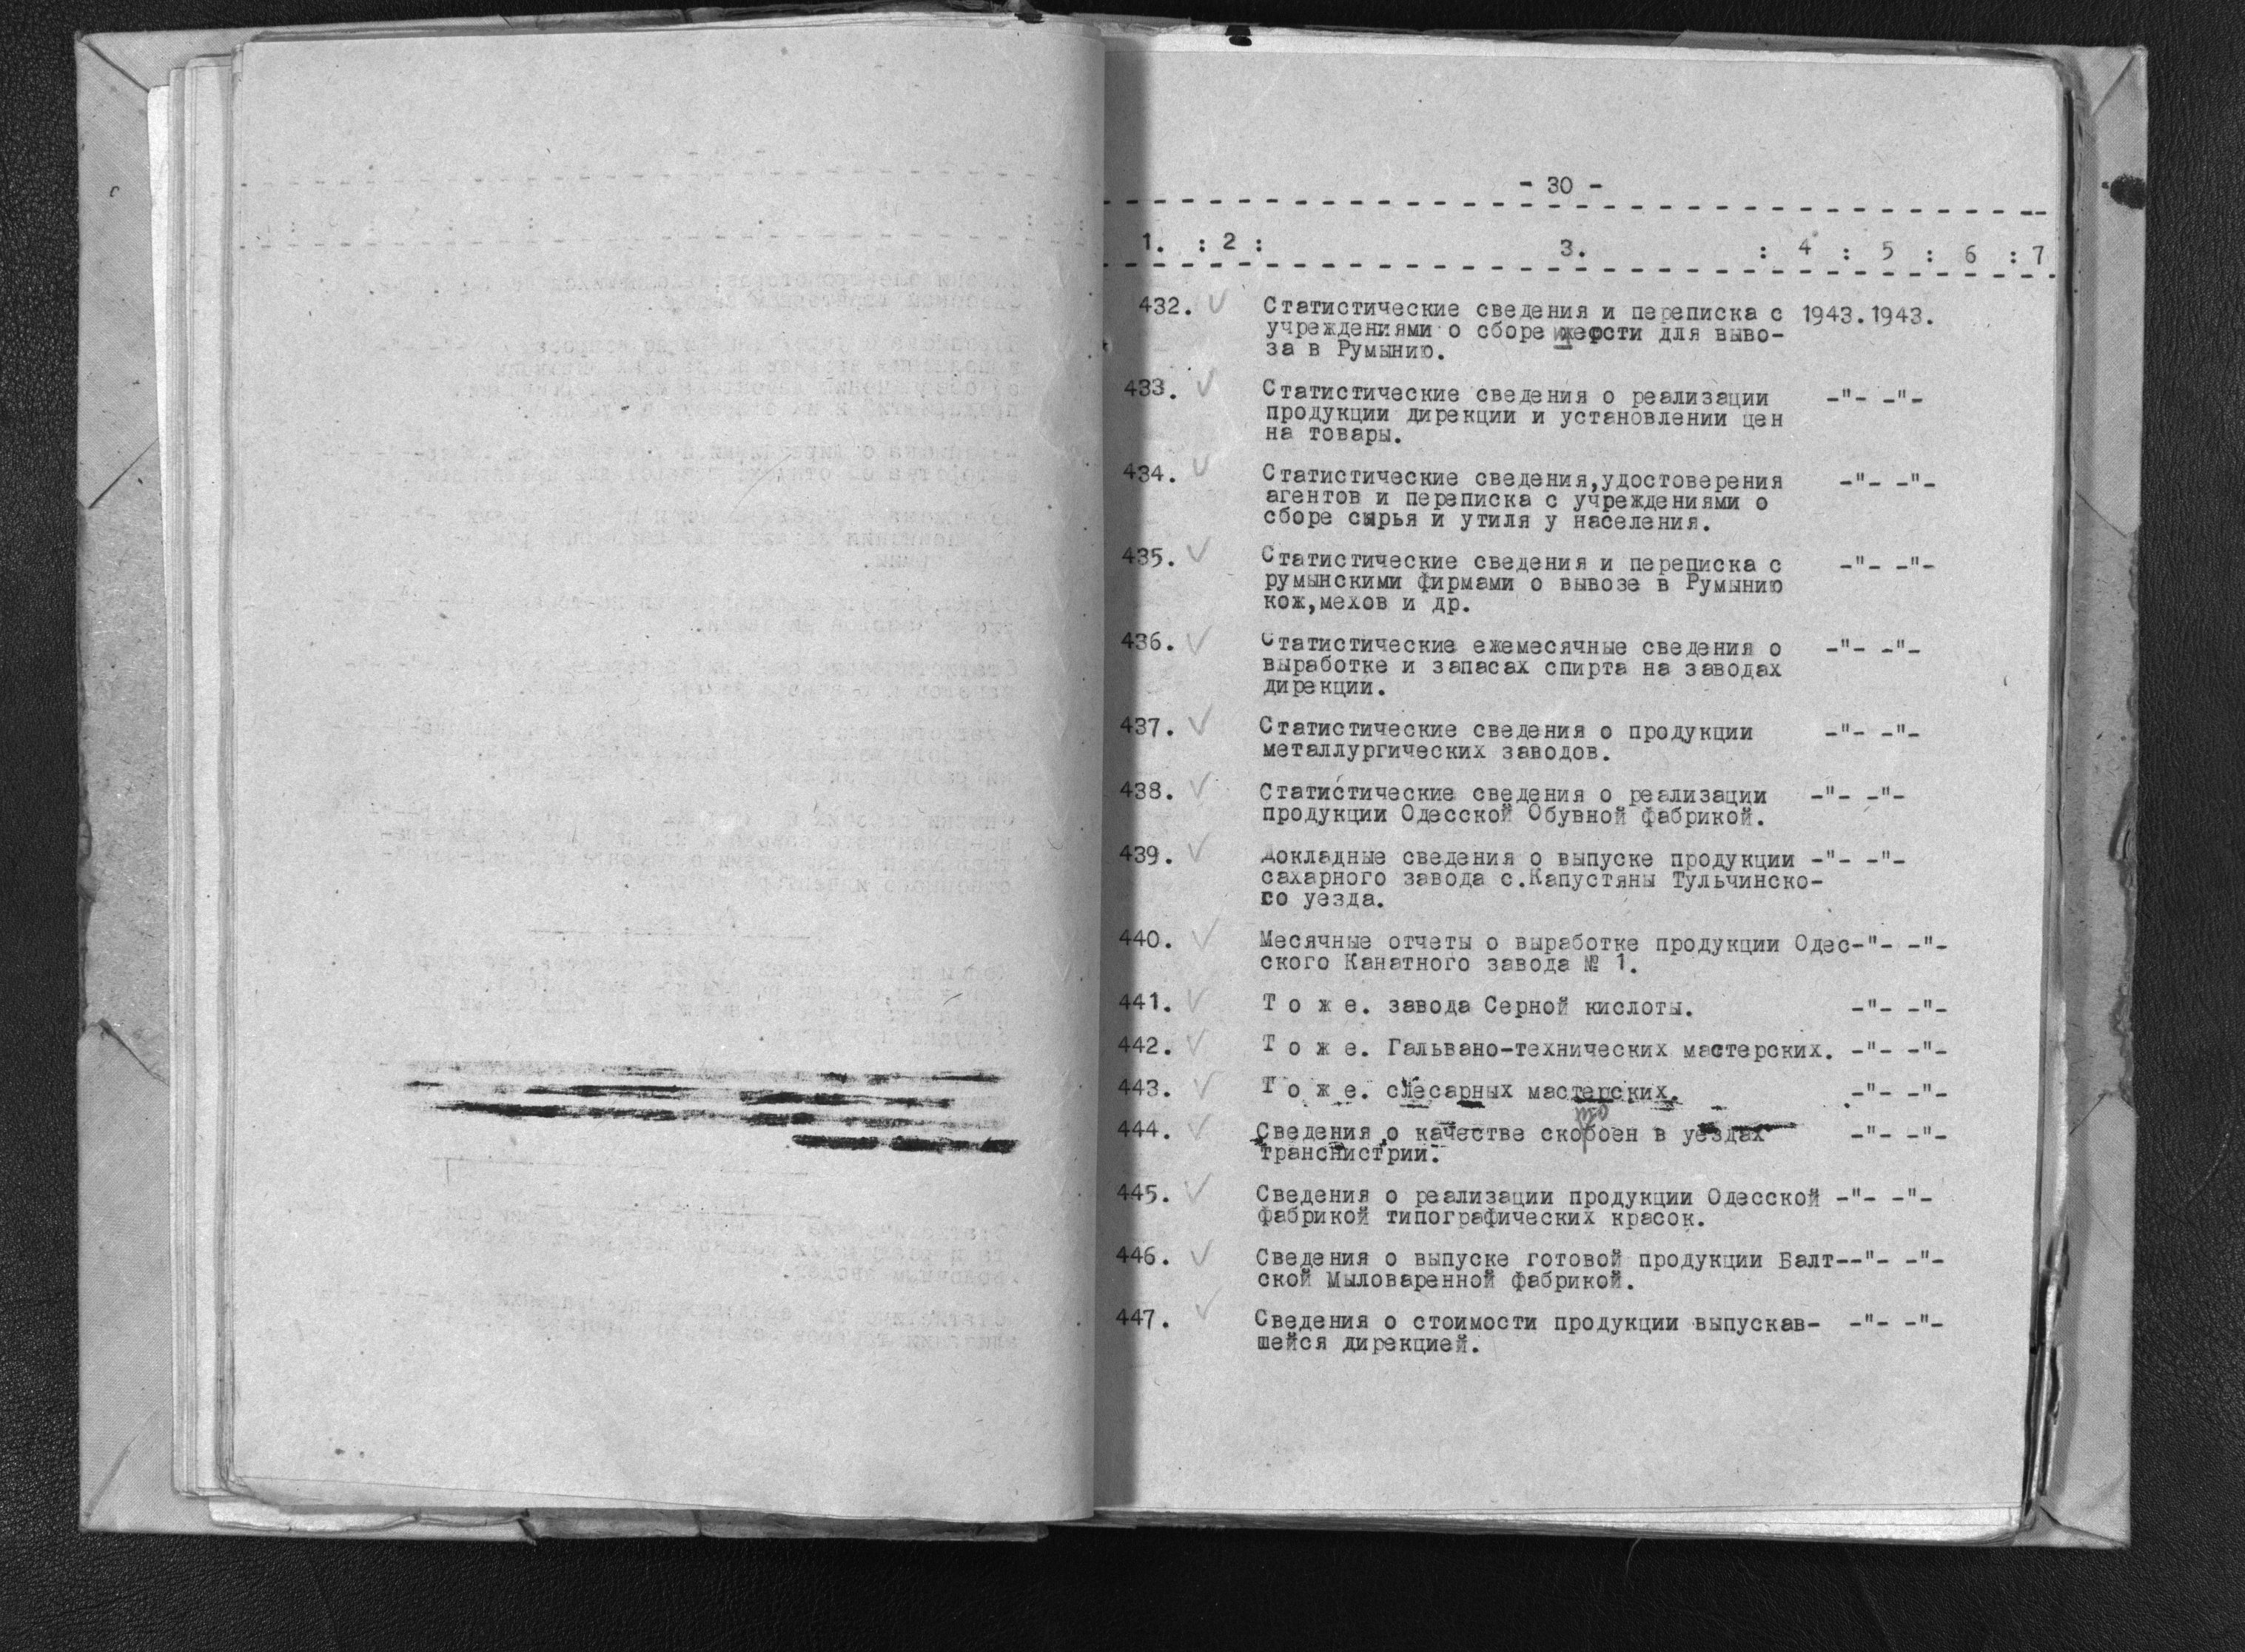 - 30 -
1. : 2 : 3. : 4 : 5 : 6 : 7
432. Статистические сведения и переписка с 1943.1943.
учреждениями о сборе шерсти для выво-
за в Румынию.
433. Статистические сведения о реализации -"- -"-
продукции дирекции и установлении цен
на товары.
434. Статистические сведения,удостоверения -"- -"-
агентов и переписка с учреждениями о
сборе сырья и утиля у населения.
435. Статистические сведения и переписка с -"- -"-
румынскими фирмами о вывозе в Румынию
кож,мехов и др.
436. Статистические ежемесячные сведения о -"- -"-
выработке и запасах спирта на заводах
дирекции.
437. Статистические сведения о продукции -"- -"-
металлургических заводов.
438. Статистические сведения о реализации -"- -"-
продукции Одесской Обувной фабрикой.
439. Докладные сведения о выпуске продукции -"- -"-
сахарного завода с.Капустяны Тульчинско-
го уезда.
440. Месячные отчеты о выработке продукции Одес-"- -"-
ского Канатного завода № 1.
441. Т о ж е. завода Серной кислоты. -"- -"-
442. Т о ж е. Гальвано-технических мастерских. -"- -"-
443. Т о ж е. слесарных мастерских. -"- -"-
444. Сведения о качестве скотобоен в уездах -"- -"-
транснистрии.
445. Сведения о реализации продукции Одесской -"- -"-
фабрикой типографических красок.
446. Сведения о выпуске готовой продукции Балт--"- -"-
ской Мыловаренной фабрикой.
447. Сведения о стоимости продукции выпускав- -"- -"-
шейся дирекцией.